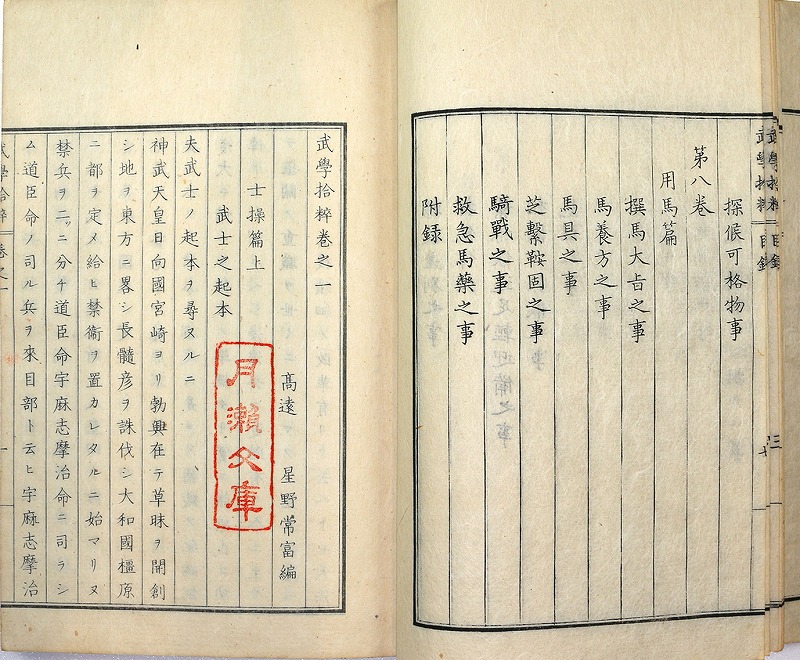 探候可格物事
第八卷
用馬篇
撰馬大旨之事
馬養方之事
馬具之事
芝繫鞍固之事
騎戰之事
救急馬藥之事
附録
武學拾粹
目錄
三
武學拾粹卷之一
髙遠 星野常富編
士操篇上
武士之起本
夫武士ノ起本ヲ尋ヌルニ
神武天皇日向國宮崎ヨリ勃興在テ草昧ヲ開創
シ地ヲ東方ニ畧シ長髓彦ヲ誅伐シ大和國橿原
ニ都ヲ定メ給ヒ禁衞ヲ置カレタルニ始マリヌ
禁兵ヲ二ツニ分チ道臣命宇麻志摩治命ニ司ラシ
ム道臣命ノ司ル兵ヲ來目部ト云ヒ宇麻志摩治
武學拾粹
卷之一
一
月瀬文庫